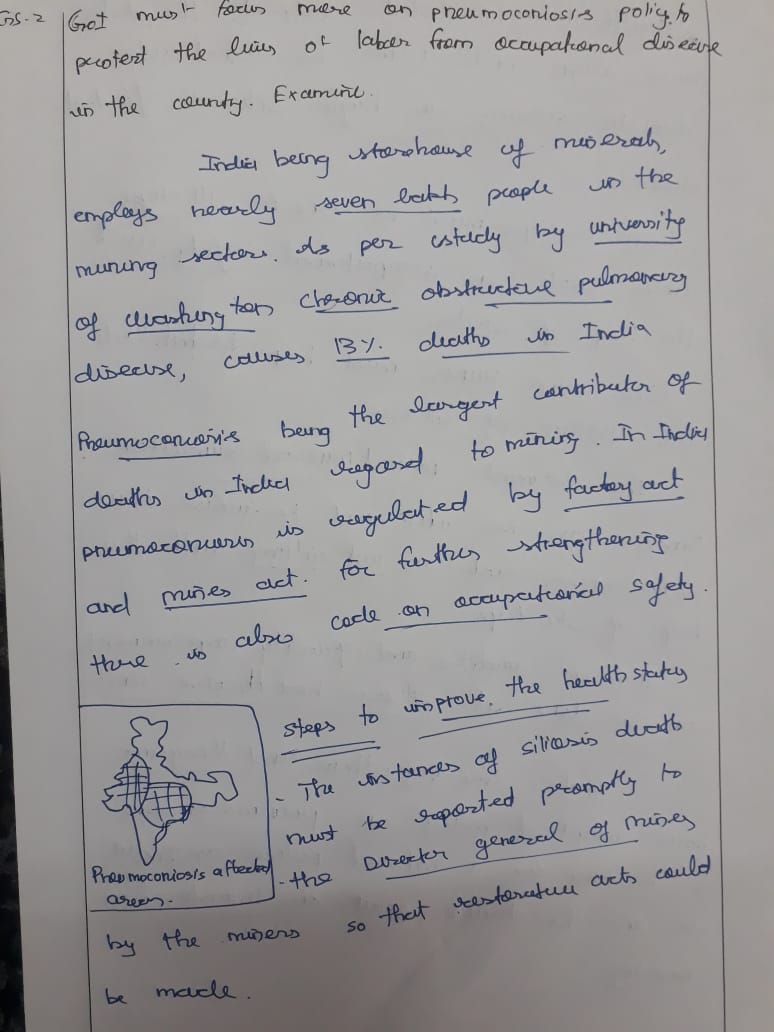 GS-2
GoI must focus more on pneumoconiosis policy to
protect the lives of labor from occupational disease
in the country. Examine.
India being storehouse of minerals,
employs nearly seven lakh people in the
mining sector. As per study by university
of washington chronic obstructive pulmonary
disease, causes 13% deaths in India
Pneumoconiosis being the largest contributor of
deaths in India regard to mining. In India
pneumoconiosis is regulated by factory act
and mines act. For further strengthening
there is also code on occupational safety.
steps to improve the health status
- The instances of silicosis death
must be reported promptly to
- the Director general of mines
Pneumoconiosis affected
areas.
by the miners so that restorative acts could
be made.